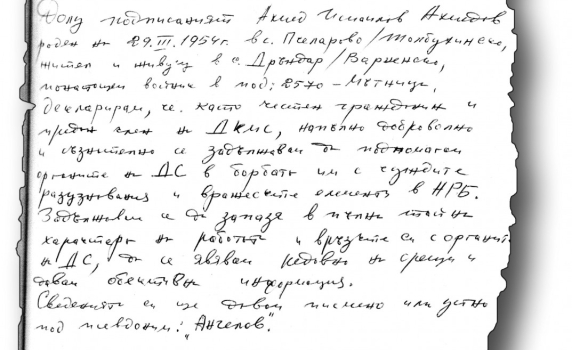 Долу подписаният Ахмед Исмаилов Ахмедов
роден на 29.III.1954г. в с. Пчеларово/Толбухинско,
жител и живущ в с. Дръндар/Варненско,
понастоящем войник в под: 2570 - Мътница,
декларирам, че като честен гражданин и
предан член на ДКМС, напълно доброволно
и съзнателно се задължавам да подпомагам
органите на ДС в борбата им с чуждите
разузнавания и вражеските елементи в НРБ.
Задължавам се да запазя в пълна тайна
характера на работата и връзките си с органите
на ДС, да се явявам редовно на срещи и
давам обективна информация.
Сведенията си ще давам писмено или устно
под псевдоним: "Ангелов".